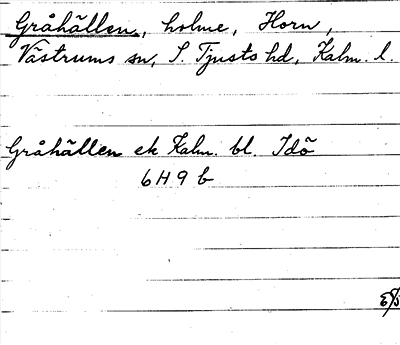 Gråhällen, holme, Horn,
Västrums sn, S. Tjusts hd, Kalm. l.
Gråhällen ek Kalm. bl. Idö
6H9b